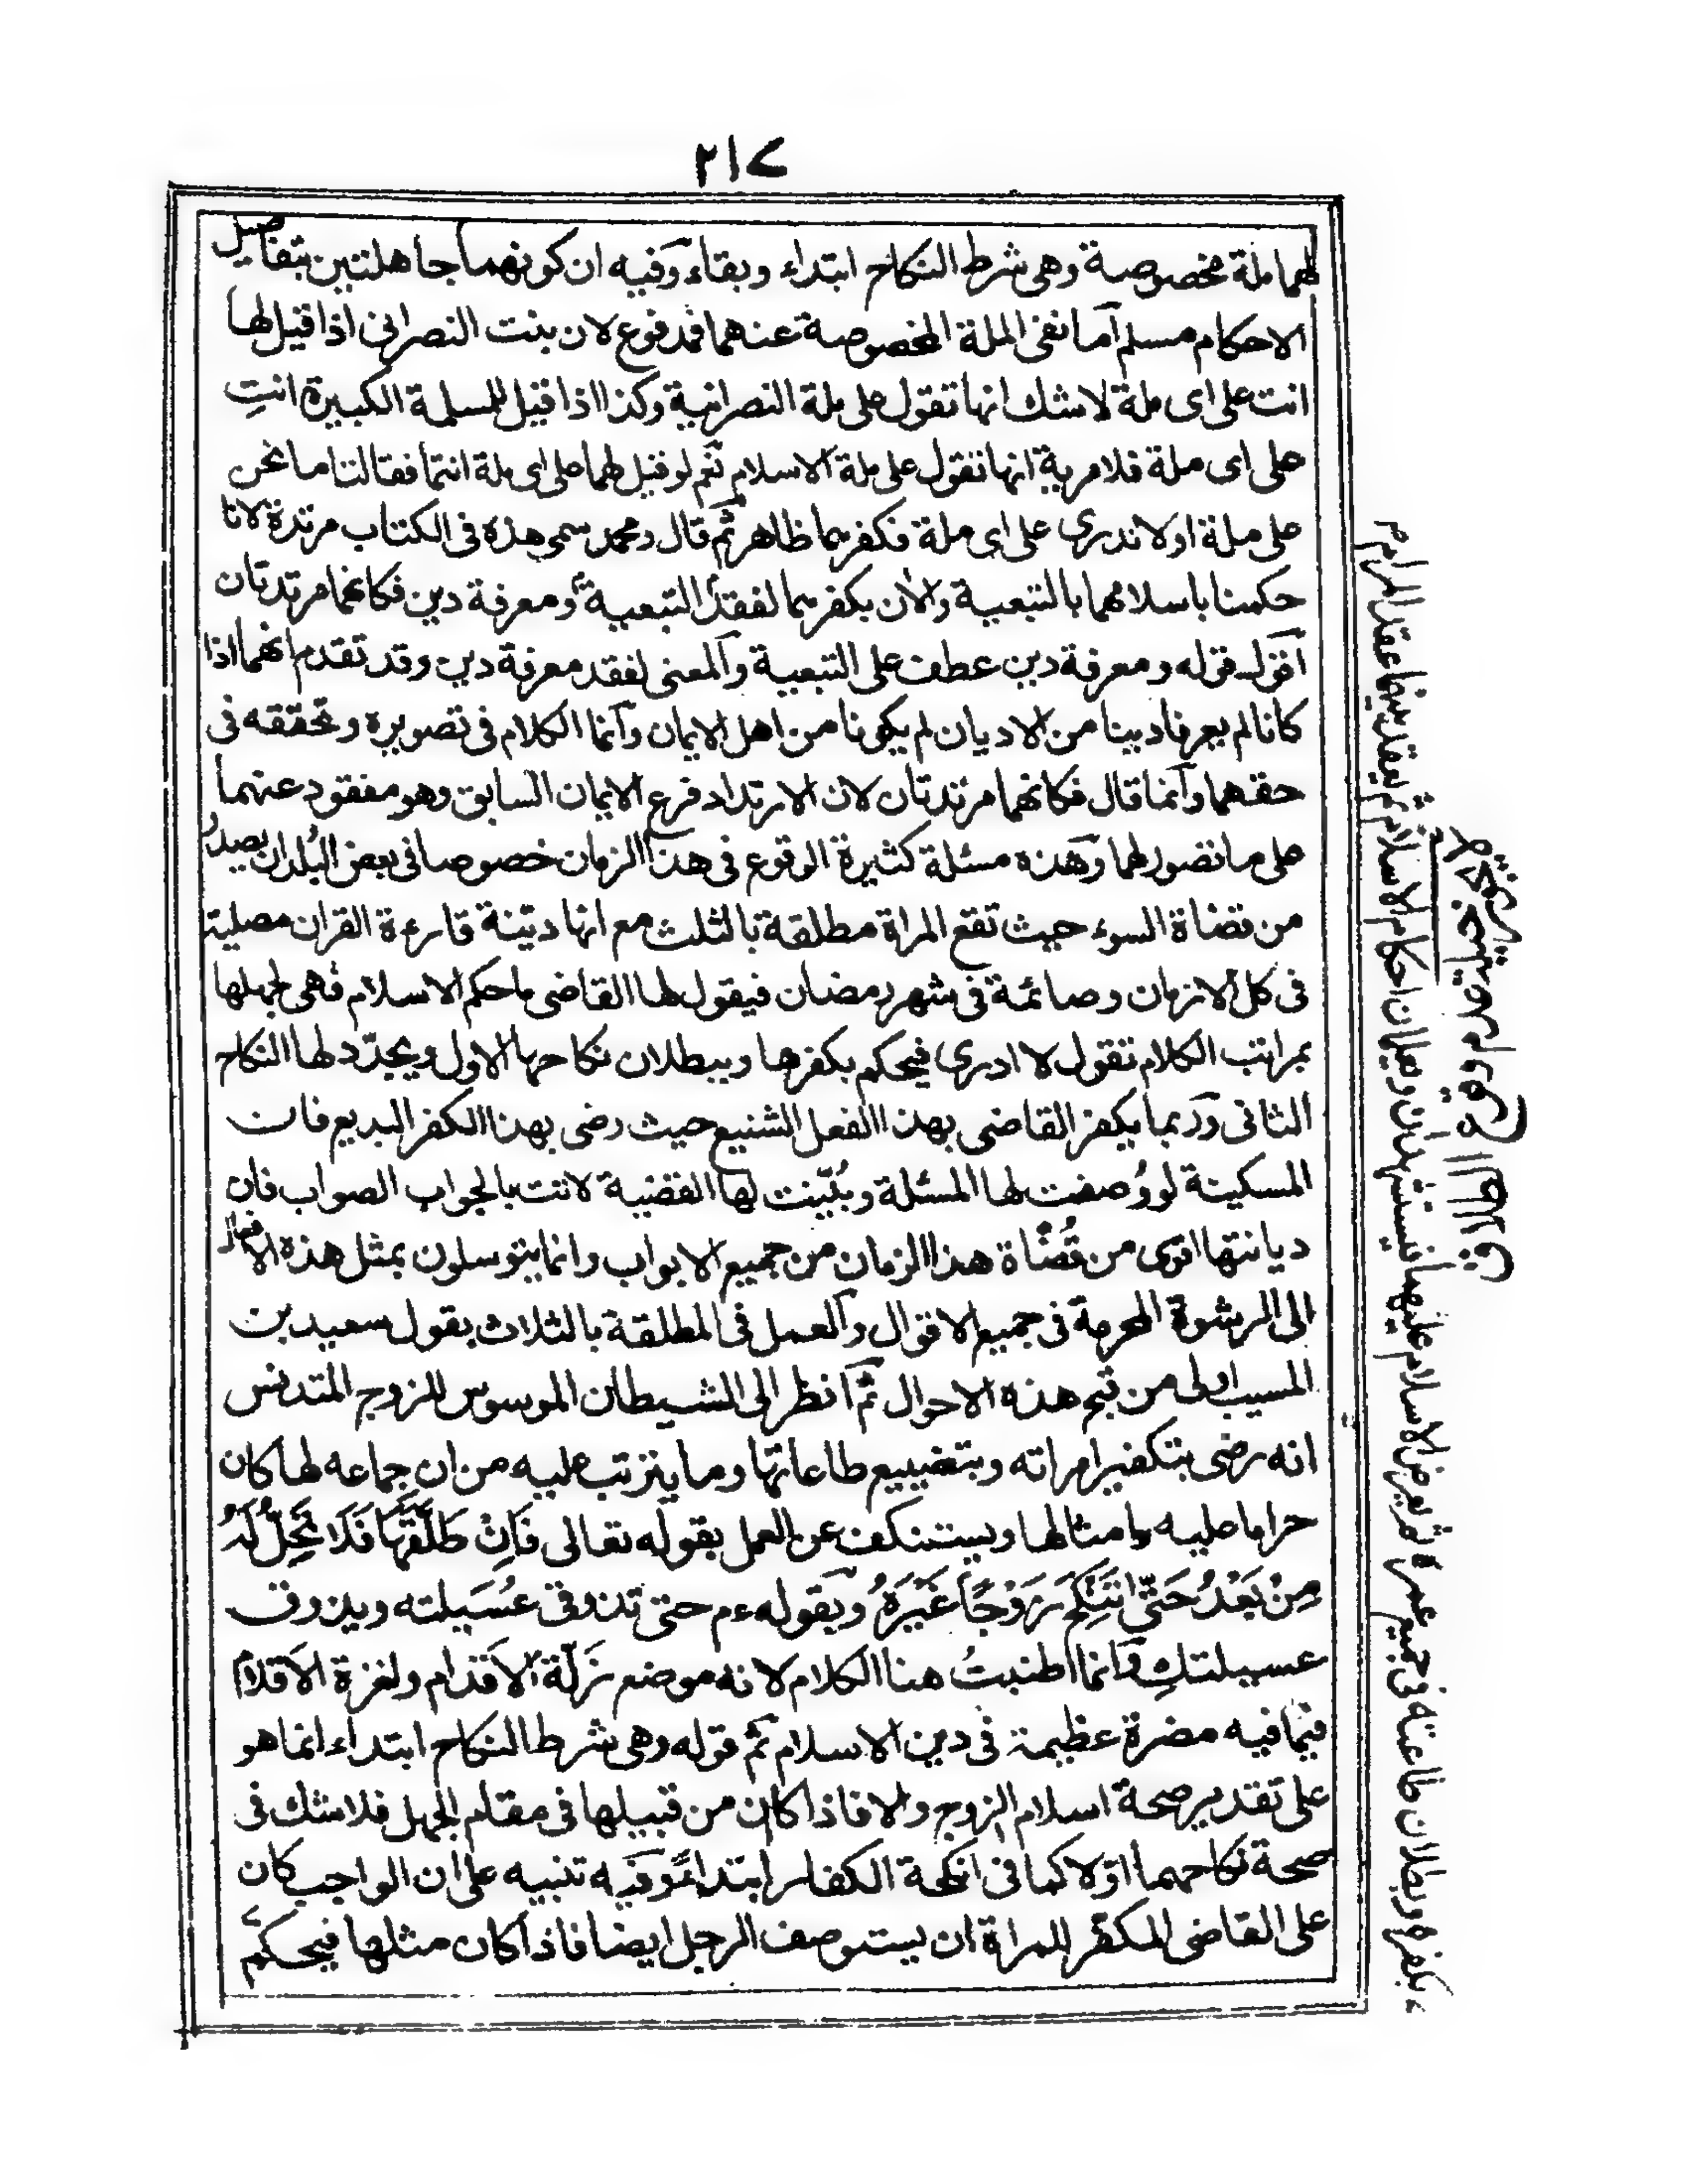 ٢١٧
لهما ملة مخصوصة وهى شرط النكاح ابتداء وبقاء وفيه ان كونهما جاهلتين بتفاصيل
الاحكام مسلم اما نفى الملة المخصوصة عنهما فمدفوع لان بنت النصرانى اذا قيل لها
انت على اى ملة لاشك انها تقول على ملة النصرانية وكذا اذا قيل للمسلمة الكبيرة انتِ
على اى ملة فلا مرية انها تقول على ملة الاسلام نعم لو قيل لهما على اى ملة انتما فقالتا ما نحن
على ملة او لا ندرى على اى ملة فكفرهما ظاهر ثم قال ومحمد سمى هذه فى الكتاب مرتدة لانا
حكمنا باسلامهما بالتبعية والأن بكفرهما لفقد التبعية ومعرفة دين فكانهما مرتدتان
اقول قوله ومعرفة دين عطف على التبعية والمعنى لفقد معرفة دين وقد تقدم انهما اذا
كانا لم يعرفا دينا من الاديان لم يكونا من اهل الايمان وانما الكلام فى تصويره وتحققه فى
حقهما وانما قال فكانهما مرتدتان لان الارتداد فرع الايمان السابق وهو مفقود عنهما
على ما تصور لهما وهذه مسئلة كثيرة الوقوع فى هذا الزمان خصوصا فى بعض البُلدان يصدرُ
من قضاة السوء حيث تقع المراة مطلقة بالثلث مع انها ديّنة قارءة القران مصلية
فى كل الازمان وصائمة فى شهر رمضان فيقول لها القاضى ما حكم الاسلام فهى لجهلها
بمراتب الكلام تقول لا ادرى فيحكم بكفرها وببطلان نكاحها الاول ويجدّد لها النكاح
الثانى وربما يكفر القاضى بهذا الفعل الشنيع حيث رضى بهذا الكفر البديع فان
المسكينة لو وُصفت لها المسئلة وبُيّنت لها القضية لاتت بالجواب الصواب فان
ديانتها اقوى من قُضاة هذا الزمان من جميع الابواب وانما يتوسلون بمثل هذه الافعال
الى الرشوة المحرمة فى جميع الاقوال والعمل فى المطلقة بالثلاث بقول سعيد بن
المسيب اولى من قبح هذه الاحوال ثم انظر الى الشيطان الموسوس للزوج المتدنس
انه رضى بتكفير امراته وبتضييع طاعاتها وما يترتب عليه من ان جماعه لها كان
حراما عليه وامثالها ويستنكف عن العمل بقوله تعالى فَاِنْ طَلَّقَهَا فَلَا تَحِلُّ لَهُ
مِنْ بَعْدُ حَتّٰى تَنْكِحَ زَوْجًا غَيْرَهُ وبقوله عم حتى تذوقى عُسَيلته ويذوق
عسيلتكِ وانما اطنبتُ هنا الكلام لانه موضع زلّة الاقدام ولغزة الاقلام
فيما فيه مضرة عظيمة فى دين الاسلام ثم قوله وهى شرط النكاح ابتداء انما هو
على تقدير صحة اسلام الزوج والا فاذا كان من قبيلها فى مقام الجهل فلا شك فى
صحة نكاحهما اوّلا كما فى انكحة الكفار ابتداءً وفيه تنبيه على ان الواجب كان
على القاضى المكفّر للمراة ان يستوصف الرجل ايضا فاذا كان مثلها فيحكم
بكفره وبطلان طاعته فى جميع عمره ثم يعرض الاسلام عليهما فيستشهدان ويعلمان احكام الاسلام ثم يعقد بينهما عقد المرام